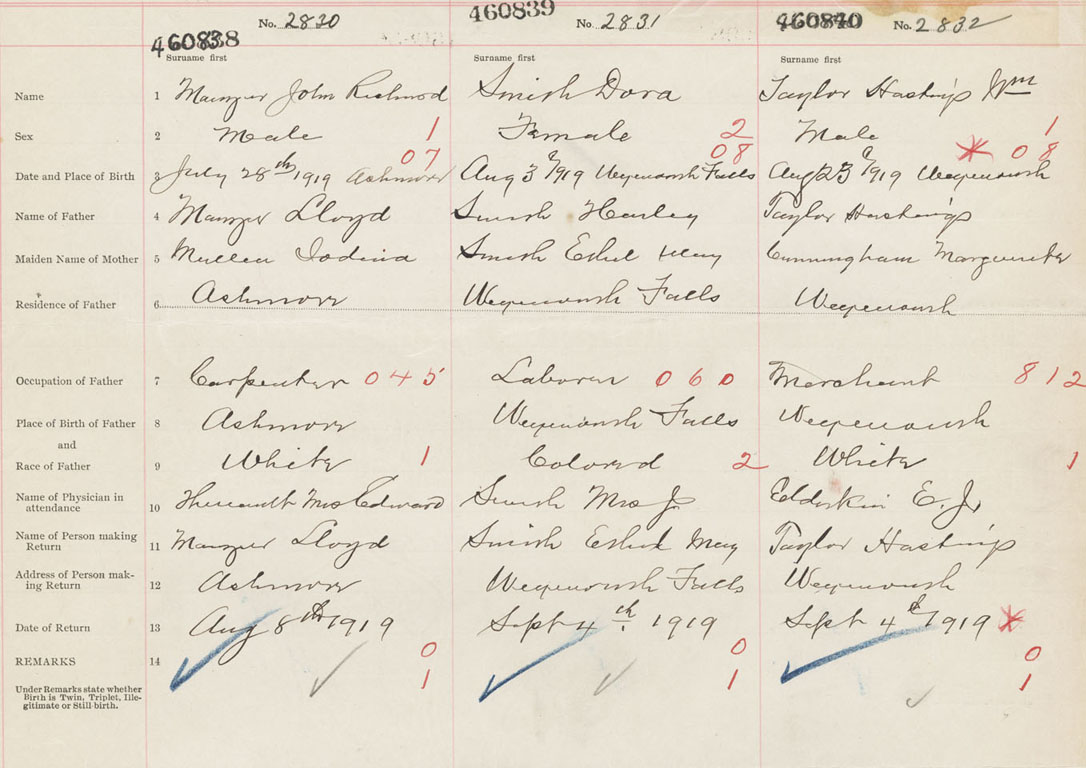 No. 2830 460839 No. 2831 460840 No. 2832
460838
Surname first Surname first Surname first
Name 1 Manzer John Richmod Smish Dora Taylor Hastings Wm
Sex 2 Male 1 Female 2 Male 1
07 08 * 08
Date and Place of Birth 3 July 28th 1919 Ashmore Aug 3 1919 Weymouth Falls Aug 23 1919 Weymouth
Name of Father 4 Manzer Lloyd Smish Harley Taylor Hastings
Maiden Name of Mother 5 Mullen Smish Ethel May Cunningham Marguerite
Residence of Father 6 Ashmore Weymouth Falls Weymouth
Occupation of Father 7 Carpenter 045 Laborer 060 Merchant 812
Place of Birth of Father 8 Ashmore Weymouth Falls Weymouth
and
Race of Father 9 White 1 Colored 2 White 1
Name of Physician in
attendance 10 Mrs Edward Smish Mrs J. Elderkin E. J.
Name of Person making
Return 11 Manzer Lloyd Smish Ethel May Taylor Hastings
Address of Person mak-
ing Return 12 Ashmore Weymouth Falls Weymouth
Date of Return 13 Aug 8th 1919 Sept 4th. 1919 Sept 4th 1919 *
REMARKS 14 0 0 0
1 1 1
Under Remarks state whether
Birth is Twin, Triplet, Ille-
gitimate or Still-birth.